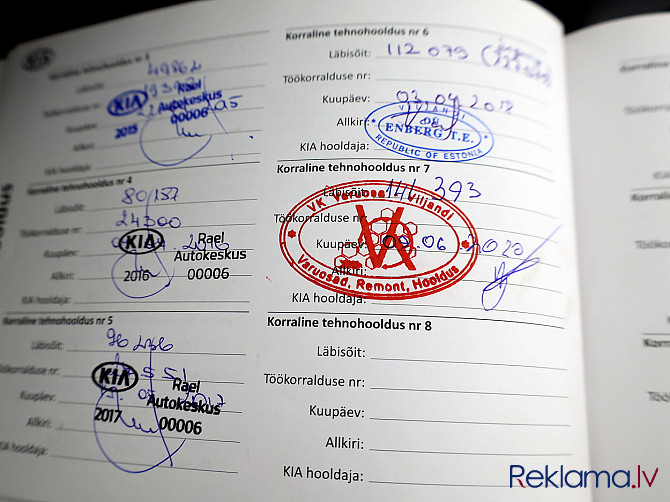 Korraline tehnohooldus nr 3
Läbisõit: 49862
Töökorralduse nr:
Kuupäev:
Allkiri:
KIA hooldaja:
KIA
2015
Rael
Autokeskus
00006
Korraline tehnohooldus nr 4
Läbisõit: 80/157
Töökorralduse nr: 24300
Kuupäev:
Allkiri:
KIA hooldaja:
KIA
2016
Rael
Autokeskus
00006
Korraline tehnohooldus nr 5
Läbisõit: 96236
Töökorralduse nr:
Kuupäev:
Allkiri:
KIA hooldaja:
KIA
2017
Rael
Autokeskus
00006
Korraline tehnohooldus nr 6
Läbisõit: 112 079
Töökorralduse nr:
Kuupäev: 03.04.2018
Allkiri:
KIA hooldaja:
VILJANDI
ENBERG T.E.
REPUBLIC OF ESTONIA
Korraline tehnohooldus nr 7
Läbisõit: 141 393
Töökorralduse nr:
Kuupäev: 09.06 2020
Allkiri:
KIA hooldaja:
VK Varuosad Viljandi
Varuosad, Remont, Hooldus
Korraline tehnohooldus nr 8
Läbisõit:
Töökorralduse nr:
Kuupäev:
Allkiri:
KIA hooldaja:
Reklama.lv